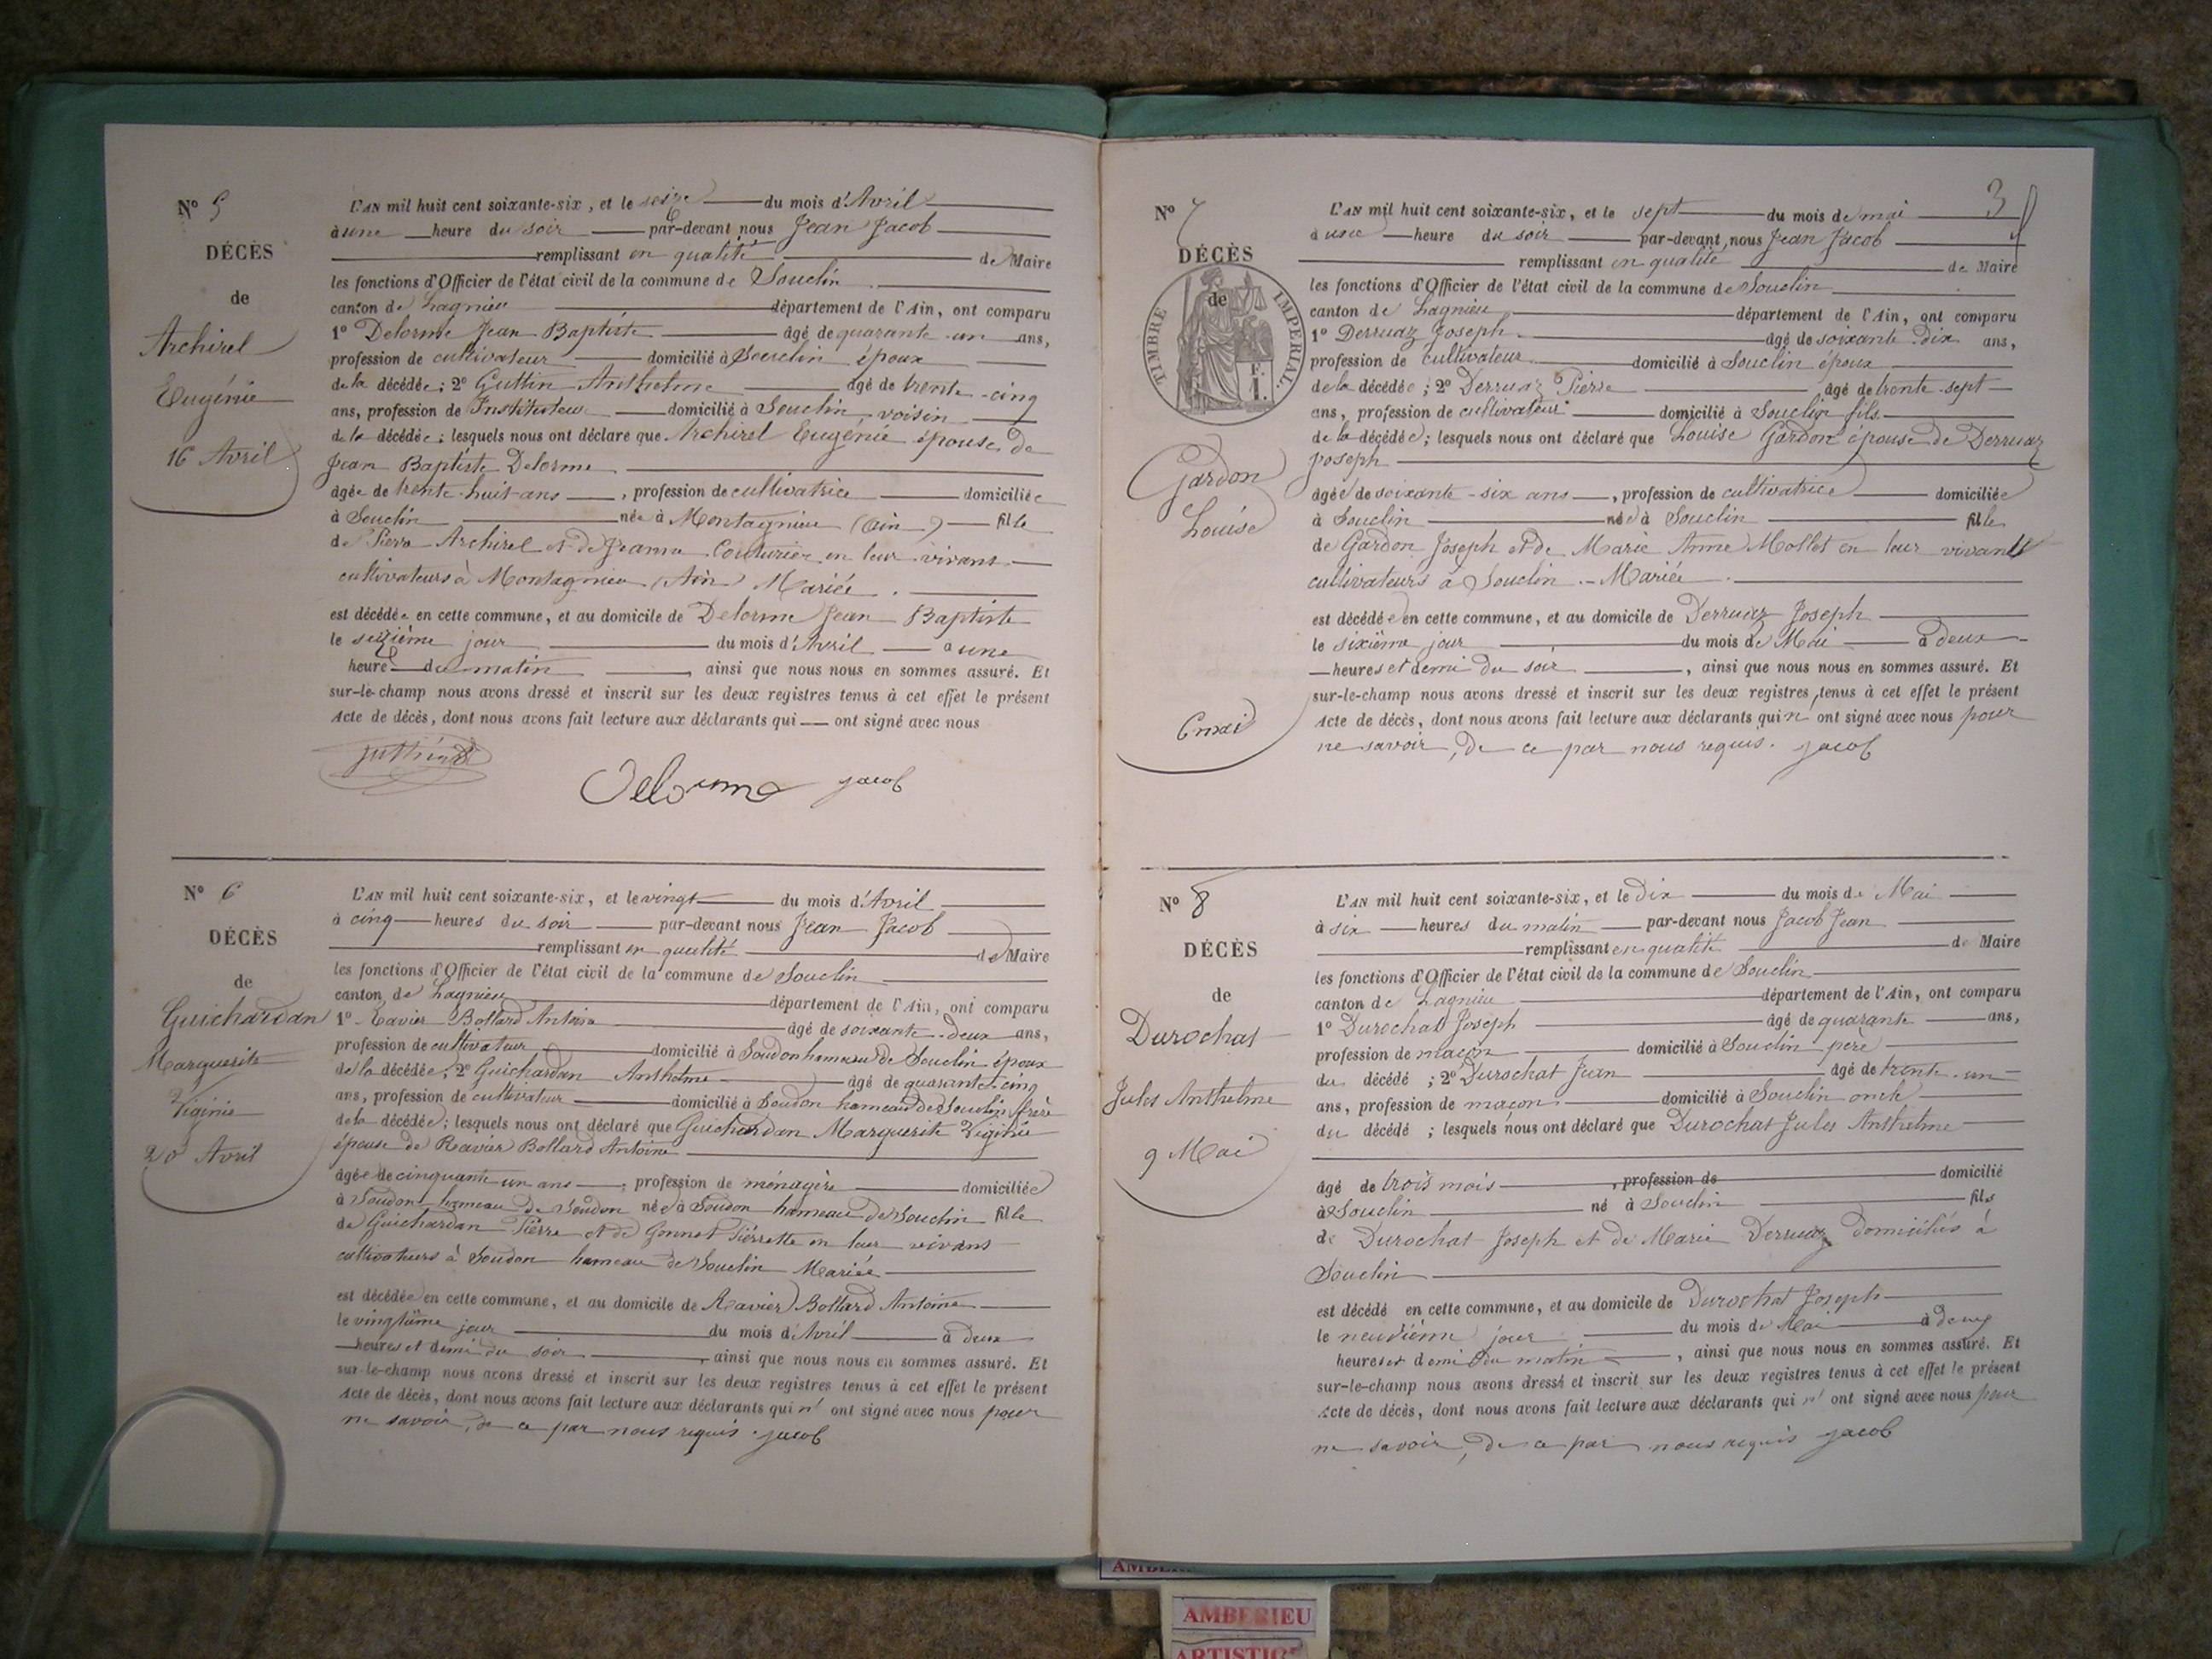 N° 5
DÉCÈS
de
Archirel
Eugénie
16 Avril
L'AN mil huit cent soixante-six, et le seize du mois d'Avril
à une heure du soir par-devant nous Jean Jacob
remplissant en qualité de Maire
les fonctions d'Officier de l'état civil de la commune de Souclin
canton de Lagnieu département de l'Ain, ont comparu
1° Delorme Jean Baptiste âgé de quarante un ans,
profession de cultivateur domicilié à Souclin époux
de la décédée; 2° Guttin Anthelme âgé de trente-cinq
ans, profession de Instituteur domicilié à Souclin voisin
de la décédée; lesquels nous ont déclaré que Archirel Eugénie épouse de
Jean Baptiste Delorme
âgée de trente-huit ans, profession de cultivatrice domiciliée
à Souclin née à Montagnieu (Ain) fille
de Pierre Archirel et de Jeanne Couturier en leur vivans
cultivateurs à Montagnieu (Ain) Mariée.
est décédée en cette commune, et au domicile de Delorme Jean Baptiste
le seizième jour du mois d'Avril à une
heure du matin, ainsi que nous nous en sommes assuré. Et
sur-le-champ nous avons dressé et inscrit sur les deux registres tenus à cet effet le présent
Acte de décès, dont nous avons fait lecture aux déclarants qui ont signé avec nous
Delorme jacob
N° 6
DÉCÈS
de
Guichardan
Marguerite
Viginie
20 Avril
L'AN mil huit cent soixante-six, et le vingt du mois d'Avril
à cinq heures du soir par-devant nous Jean Jacob
remplissant en qualité de Maire
les fonctions d'Officier de l'état civil de la commune de Souclin
canton de Lagnieu département de l'Ain, ont comparu
1° Ravier Bollard Antoine âgé de soixante-deux ans,
profession de cultivateur domicilié à Soudon hameau de Souclin époux
de la décédée; 2° Guichardan Anthelme âgé de quarante cinq
ans, profession de cultivateur domicilié à Soudon hameau de Souclin frère
de la décédée; lesquels nous ont déclaré que Guichardan Marguerite Viginie
épouse de Ravier Bollard Antoine
âgée de cinquante un ans, profession de ménagère domiciliée
à Soudon hameau de Soudon née à Soudon hameau de Souclin fille
de Guichardan Pierre et de Gonnet Pierrette en leur vivans
cultivateurs à Soudon hameau de Souclin Mariée
est décédée en cette commune, et au domicile de Ravier Bollard Antoine
le vingtième jour du mois d'Avril à deux
heures et demi du soir, ainsi que nous nous en sommes assuré. Et
sur-le-champ nous avons dressé et inscrit sur les deux registres tenus à cet effet le présent
Acte de décès, dont nous avons fait lecture aux déclarants qui n' ont signé avec nous pour
ne savoir, de ce par nous requis. jacob
3
N° 7
DÉCÈS
de
TIMBRE IMPERIAL.
F.
1.
Gardon
Louise
6 mai
L'AN mil huit cent soixante-six, et le sept du mois de mai
à une heure du soir par-devant nous Jean Jacob
remplissant en qualité de Maire
les fonctions d'Officier de l'état civil de la commune de Souclin
canton de Lagnieu département de l'Ain, ont comparu
1° Derruaz Joseph âgé de soixante dix ans,
profession de cultivateur domicilié à Souclin époux
de la décédée; 2° Derruaz Pierre âgé de trente-sept
ans, profession de cultivateur domicilié à Souclin fils
de la décédée; lesquels nous ont déclaré que Louise Gardon épouse de Derruaz
Joseph
âgée de soixante-six ans, profession de cultivatrice domiciliée
à Souclin née à Souclin fille
de Gardon Joseph et de Marie Anne Mollet en leur vivants
cultivateurs à Souclin. Mariée.
est décédée en cette commune, et au domicile de Derruaz Joseph
le sixième jour du mois de Mai à deux
heures et demi du soir, ainsi que nous nous en sommes assuré. Et
sur-le-champ nous avons dressé et inscrit sur les deux registres tenus à cet effet le présent
Acte de décès, dont nous avons fait lecture aux déclarants qui n' ont signé avec nous pour
ne savoir, de ce par nous requis. jacob
N° 8
DÉCÈS
de
Durochat
Jules Anthelme
9 Mai
L'AN mil huit cent soixante-six, et le dix du mois de Mai
à six heures du matin par-devant nous Jacob Jean
remplissant en qualité de Maire
les fonctions d'Officier de l'état civil de la commune de Souclin
canton de Lagnieu département de l'Ain, ont comparu
1° Durochat Joseph âgé de quarante ans,
profession de maçon domicilié à Souclin père
du décédé; 2° Durochat Jean âgé de trente-un
ans, profession de maçon domicilié à Souclin oncle
du décédé; lesquels nous ont déclaré que Durochat Jules Anthelme
âgé de trois mois, profession de domicilié
à Souclin né à Souclin fils
de Durochat Joseph et de Marie Derruaz domiciliés à
Souclin
est décédé en cette commune, et au domicile de Durochat Joseph
le neuvième jour du mois de Mai à deux
heures et demi du matin, ainsi que nous nous en sommes assuré. Et
sur-le-champ nous avons dressé et inscrit sur les deux registres tenus à cet effet le présent
Acte de décès, dont nous avons fait lecture aux déclarants qui n' ont signé avec nous pour
ne savoir, de ce par nous requis jacob
AMBERIEU